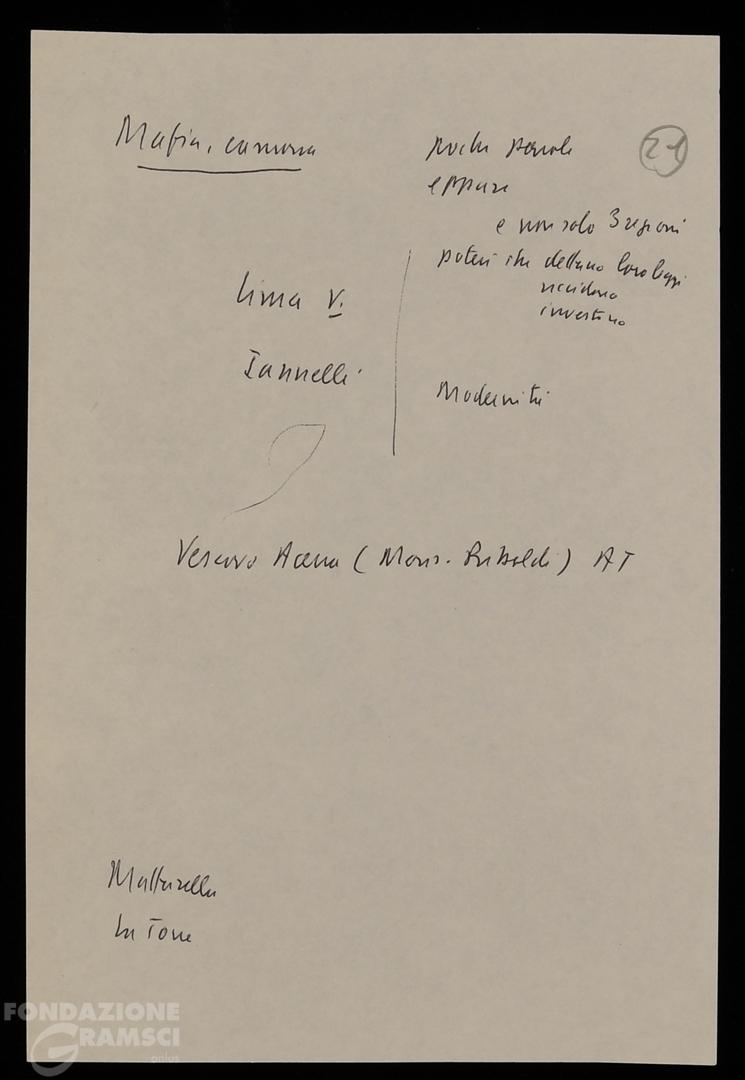 Mafia, camorra
poche parole
21
eppure
e non solo 3 regioni
poteri che dettano loro leggi
uccidono
investono
Lima V.
Iannelli
Modernità
Vescovo Acerra (Mons. Riboldi) AT
Mattarella
La Torre
FONDAZIONE
GRAMSCI
onlus